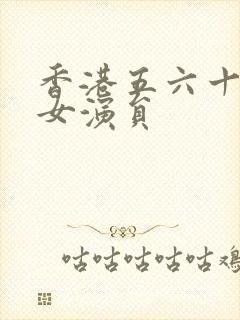 香港五六十
女演員
咕咕咕咕咕鸡